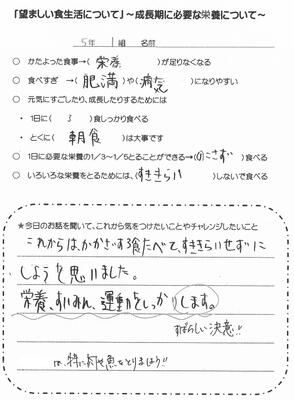 「望ましい食生活について」～成長期に必要な栄養について～
5年 1組 名前
○ かたよった食事→( 栄養 )が足りなくなる
○ 食べすぎ →( 肥満 )や( 病気 )になりやすい
○ 元気にすごしたり、成長したりするためには
・1日に( 3 )食しっかり食べる
・とくに( 朝食 )は大事です
○ 1日に必要な栄養の1/3～1/5とることができる→( のこさず )食べる
○ いろいろな栄養をとるためには、( すききらい )しないで食べる
★今日のお話を聞いて、これから気をつけたいことやチャレンジしたいこと
これからは、かかさず3食たべて、すききらいせずに
しようと思いました。
栄養、すいみん、運動をしっかりします。
すばらしい決意!!
特に肉や魚をとりましょう!!